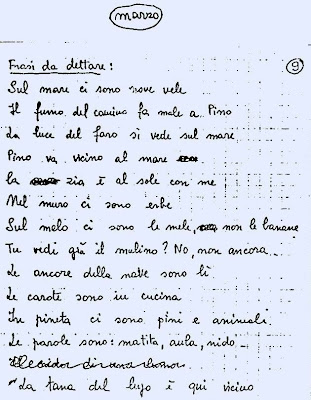 marzo
Frasi da dettare: 9
Sul mare ci sono nove vele
Il fumo del camino fa male a Pino
La luce del faro si vede sul mare
Pino va vicino al mare
La zia è al sole con me
Nel muro ci sono erbe
Sul melo ci sono le mele, non le banane
Tu vedi già il mulino? No, non ancora
Le ancore della nave sono lì
Le carote sono in cucina
In pineta ci sono pini e animali
Le parole sono: matita, aula, nido
La tana del lupo è qui vicino